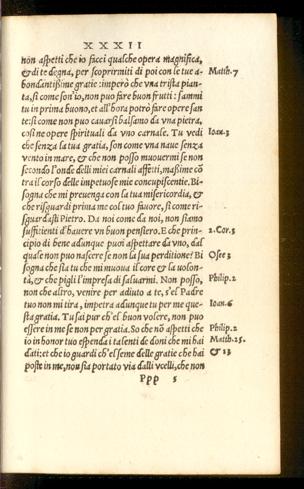 XXXII
non aspetti che io facci qualche opera magnifica,
& di te degna, per scoprirmiti di poi con le tue a-
bondantißime gratie: imperò che vna trista pian-
Matth. 7
ta, sì come son'io, non puo fare buon frutti: fammi
tu in prima buono, et all'hora potrò fare opere san
te: sì come non puo cauarsi balsamo da vna pietra,
così ne opere spirituali da vno carnale. Tu vedi
Ioan. 3
che senza la tua gratia, son come vna naue senza
vento in mare, & che non posso muouermi se non
secondo l'onde delli miei carnali affetti, maßime cō
tra il corso delle impetuose mie concupiscentie. Bi-
sogna che mi preuenga con la tua misericordia, &
che risguardi prima me col tuo fauore, sì come ri-
sguardasti Pietro. Da noi come da noi, non siamo
sufficienti d'hauere vn buon pensero. E che prin-
2. Cor. 3
cipio di bene adunque puoi aspettare da vno, dal
quale non puo nascere se non la sua perditione? Bi
Osee 3
sogna che sia tu che mi muoua il core & la volon-
tà, & che pigli l'impresa di saluarmi. Non posso,
Philip. 2
non che altro, venire per adiuto a te, s'el Padre
tuo non mi tira, impetra adunque tu per me que-
Ioan. 6
sta gratia. Tu sai pur ch'el buon volere, non puo
essere in me se non per gratia. So che nō aspetti che
Philip. 2
io in honor tuo espenda i talenti de doni che mi hai
Matth. 25.
dati: et che io guardi ch'el seme delle gratie che hai
& 13
poste in me, non sia portato via dalli vcelli, che non
Ppp 5